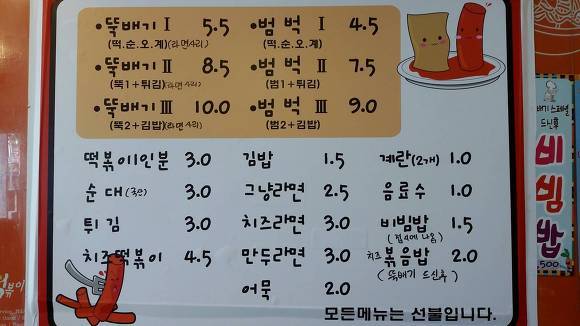 •뚝배기 Ⅰ 5.5 •범벅 Ⅰ 4.5
(떡.순.오.계)(라면사리) (떡.순.오.계)
•뚝배기 Ⅱ 8.5 •범벅 Ⅱ 7.5
(뚝1+튀김)(라면사리) (범1+튀김)
•뚝배기 Ⅲ 10.0 •범벅 Ⅲ 9.0
(뚝2+김밥)(라면사리) (범2+김밥)
떡볶이1인분 3.0 김밥 1.5 계란(2개) 1.0
순대(국산) 3.0 그냥라면 2.5 음료수 1.0
튀김 3.0 치즈라면 3.0 비빔밥 1.5
(접시에 나옴)
치즈떡볶이 4.5 만두라면 3.0 치즈볶음밥 2.0
(뚝배기 드신후)
어묵 2.0
모든메뉴는 선불입니다.
드신후
비
빔
밥